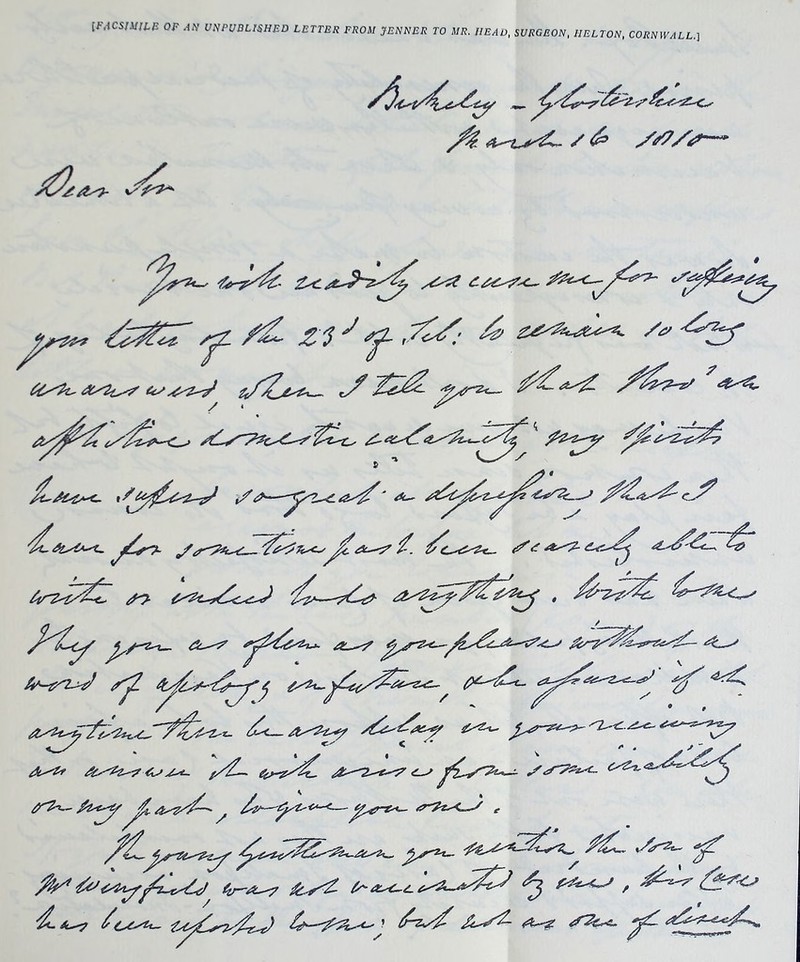 [FACSIMILE OF AN UNPUBLISHED LETTER FROM JENNER TO MR. HEAD, SURGEON, HELTON, CORNWALL.]
Berkeley – Glostershire
March 16 1810
Dear Sir
You will readily excuse me for suffering
your letter of the 23d of Feb: to remain so long
unanswerd, when I tell you that thro' an
afflictive domestic calamity, my spirits
have sufferd so great a depression, that I
have for some time past been scarcely able to
write or indeed to do anything. Write to me
I beg you as often as you please without a
word of apology in future, & be assured, if at
anytime there be any delay in your receiving
an answer it will arise from some inability
on my part, to give you one.
The young Gentleman you mention, the son of
Mr Wingfield, was not vaccinated by me. His Case
has been reported to me; but not as one of direct